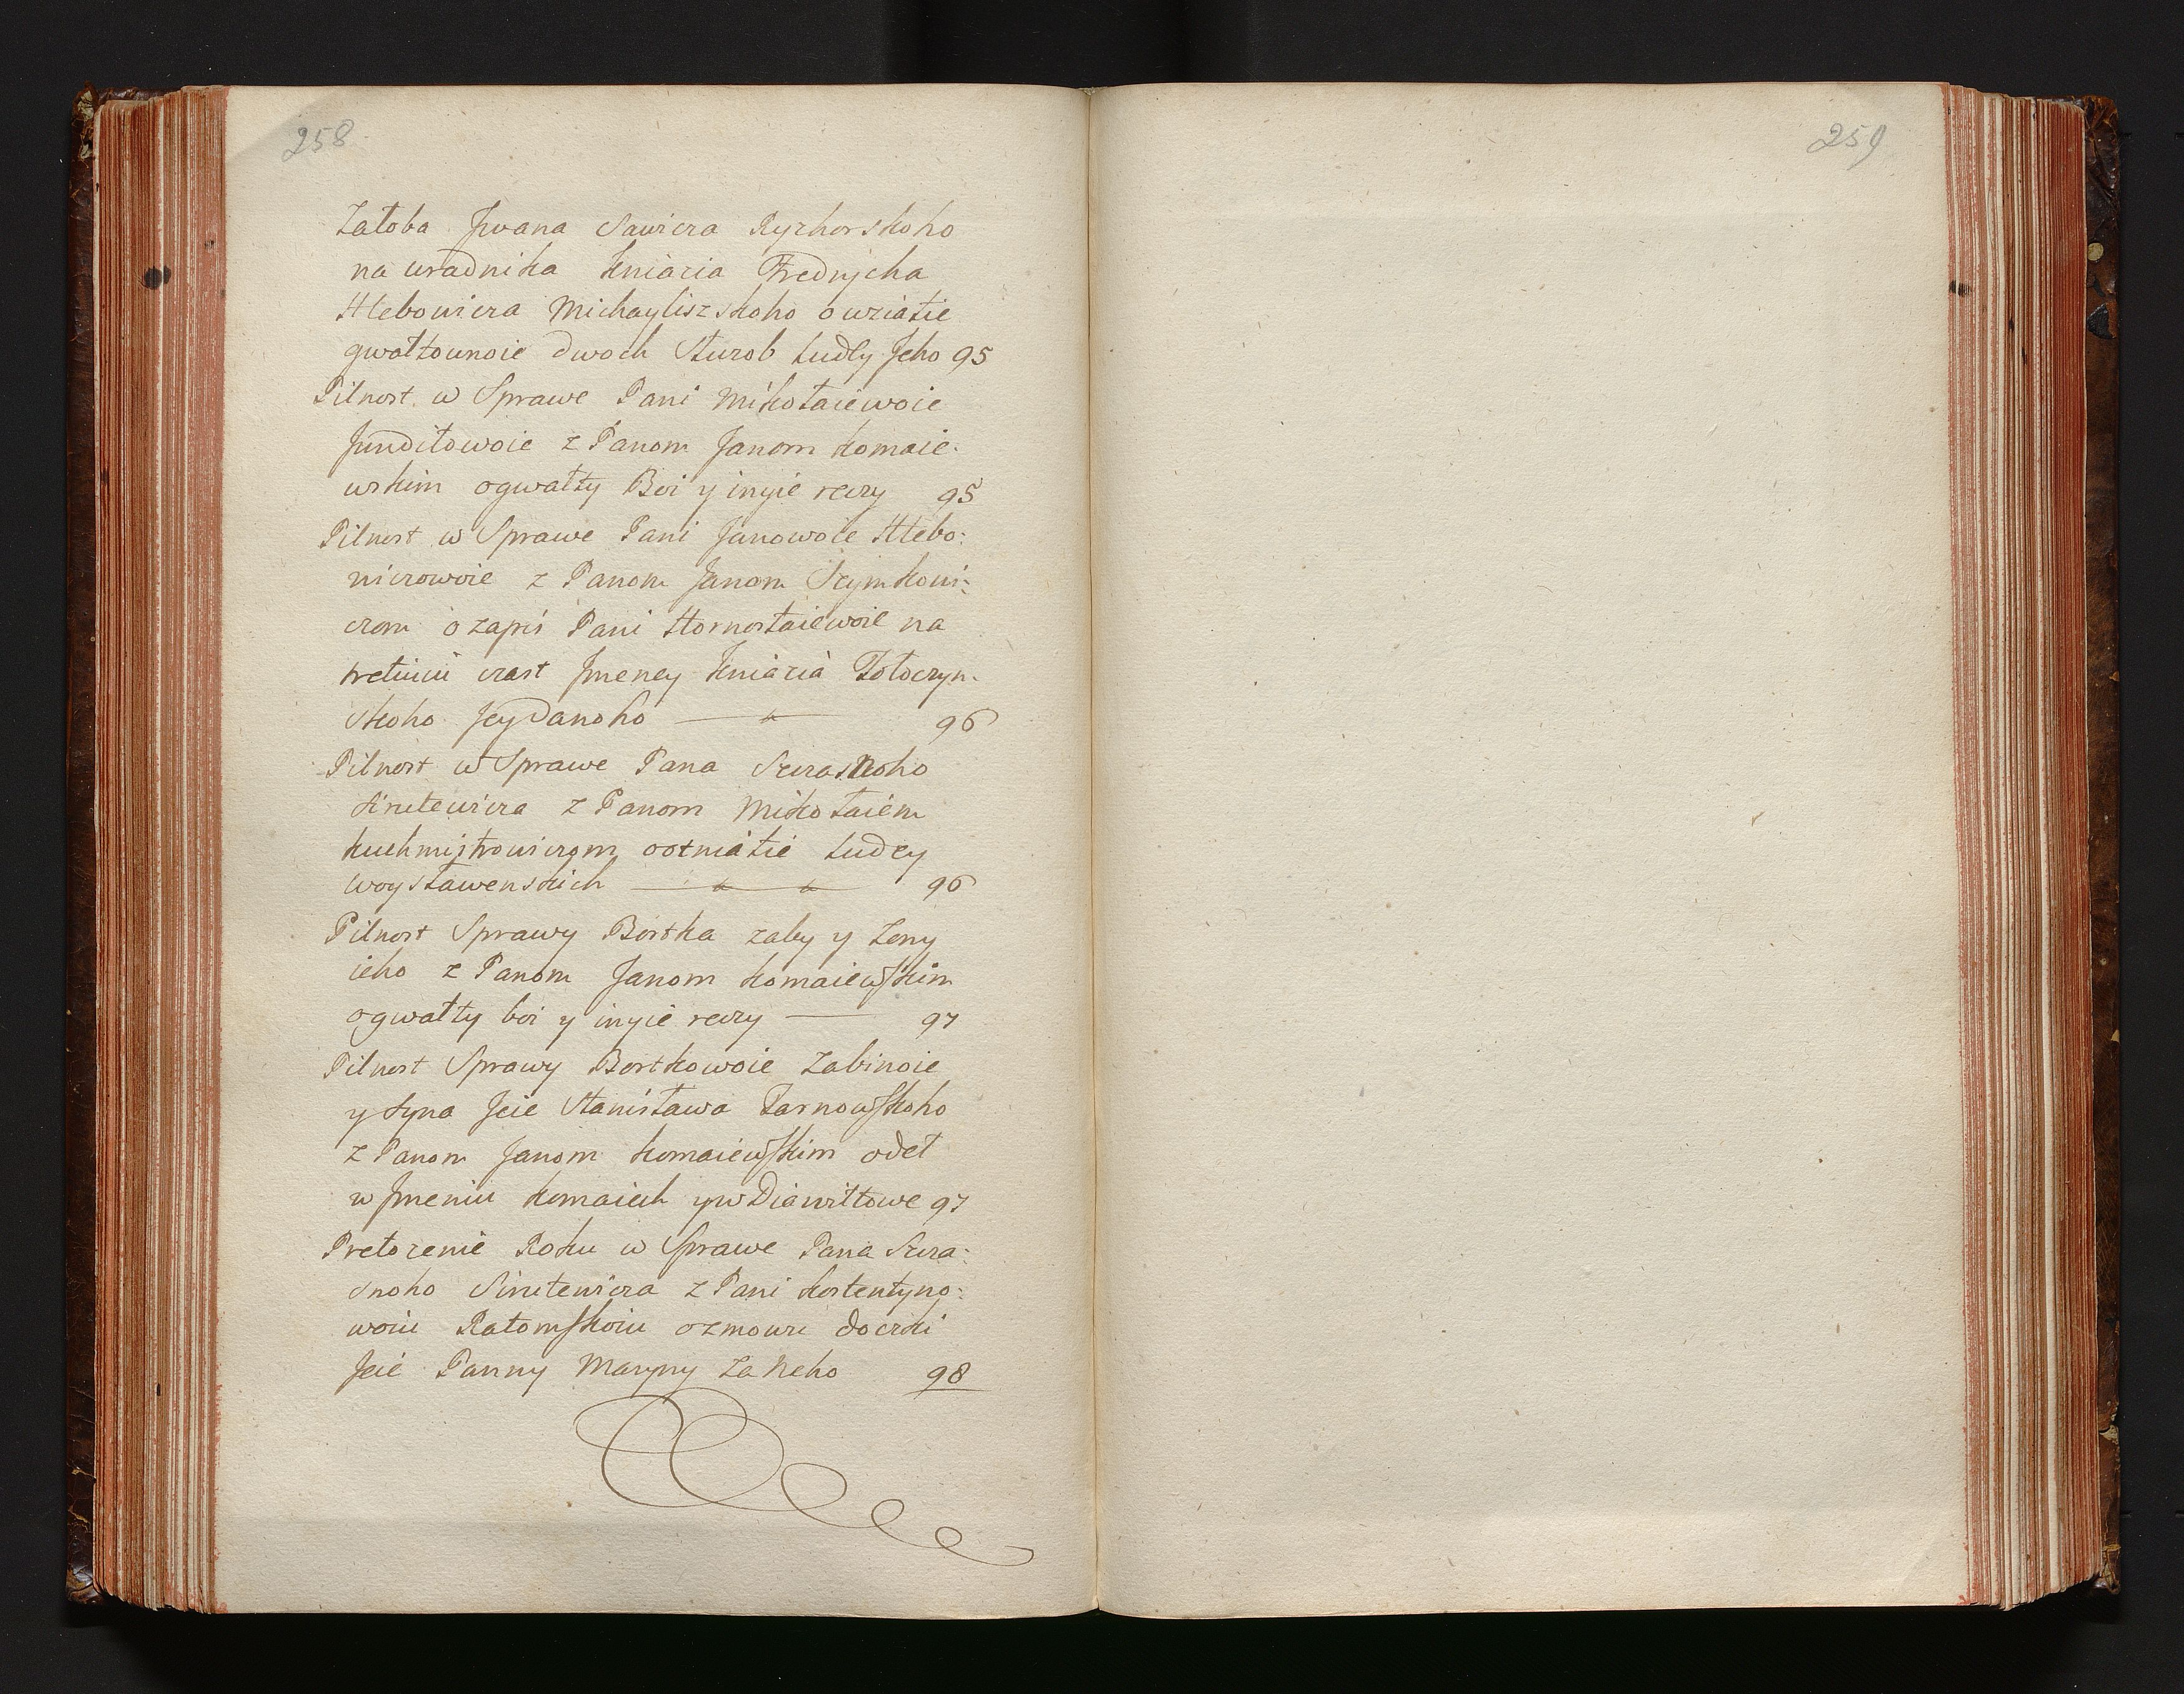 258
Załoba Jwana Sawicza Ryzhorskoho
na uradnika Kniazia Fredrycha
Hlebowicza Michayliszskoho o wziatie
gwałtownoie dwoch Słuzob Ludey Jeho 95
Pilnost w Sprawe Pani Mikołaiewoie
Jundiłowoie z Panom Janom Komaie-
wskim ogwałty Boi y inyie reczy 95
Pilnost w Sprawe Pani Janowoie Hlebo:
wiczowoie z Panom Janom Szymkowi:
czom o zapis Pani Hornostaiewoie na
tretiuiu czast Jmeney Kniazia Tołoczyn-
skoho Jeydanoho 96
Pilnost w Sprawe Pana Szczasnoho
Sirutewicza z Panom Mikołaiem
Kuchmistrowiczom ootniatie Ludey
Woysławenskich 96
Pilnost Sprawy Bortka zaby y Zony
ieho z Panom Janom Komaiewskim
ogwałty boi y inyie reczy 97
Pilnost Sprawy Bortkowoie Zabinoie
y Syna Jeie Stanisława Tarnowskoho
z Panom Janom Komaiewskim odeł
w Jmeniu Komaiech yw Diawiłtowe 97
Prełozenie Roku w Sprawe Pana Szcza:
snoho Sirutewicza z Pani Kostentyno:
woiu Ratomskoiu ozmowu doczki
Jeie Panny Maryny Za Neho 98
259